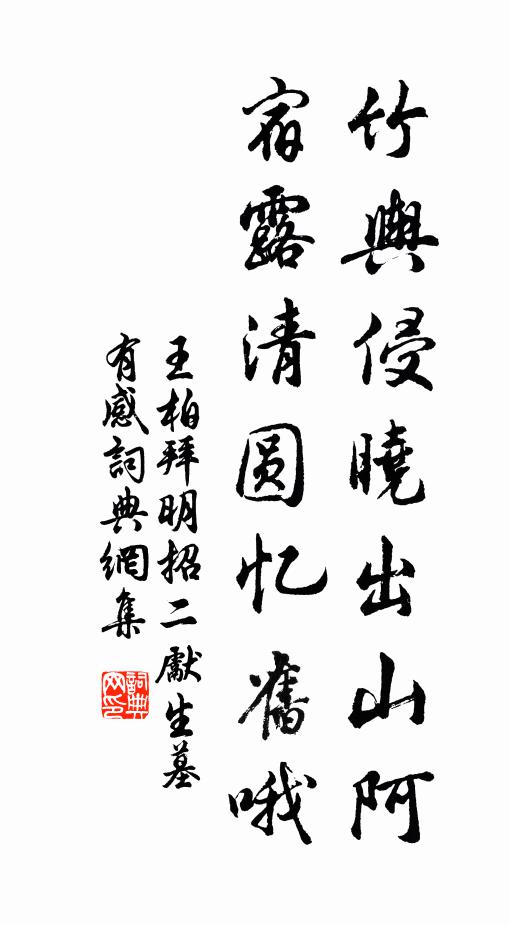 竹輿侵曉出山阿
宿露清圆忆舊哦
王柏拜明招二獻生墓
有感詞典網集
詞典网印